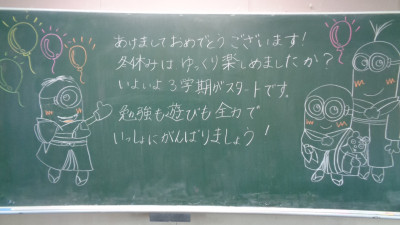 あけましておめでとうございます!
冬休みはゆっくり楽しめましたか?
いよいよ3学期がスタートです。
勉強も遊びも全力で
いっしょにがんばりましょう!